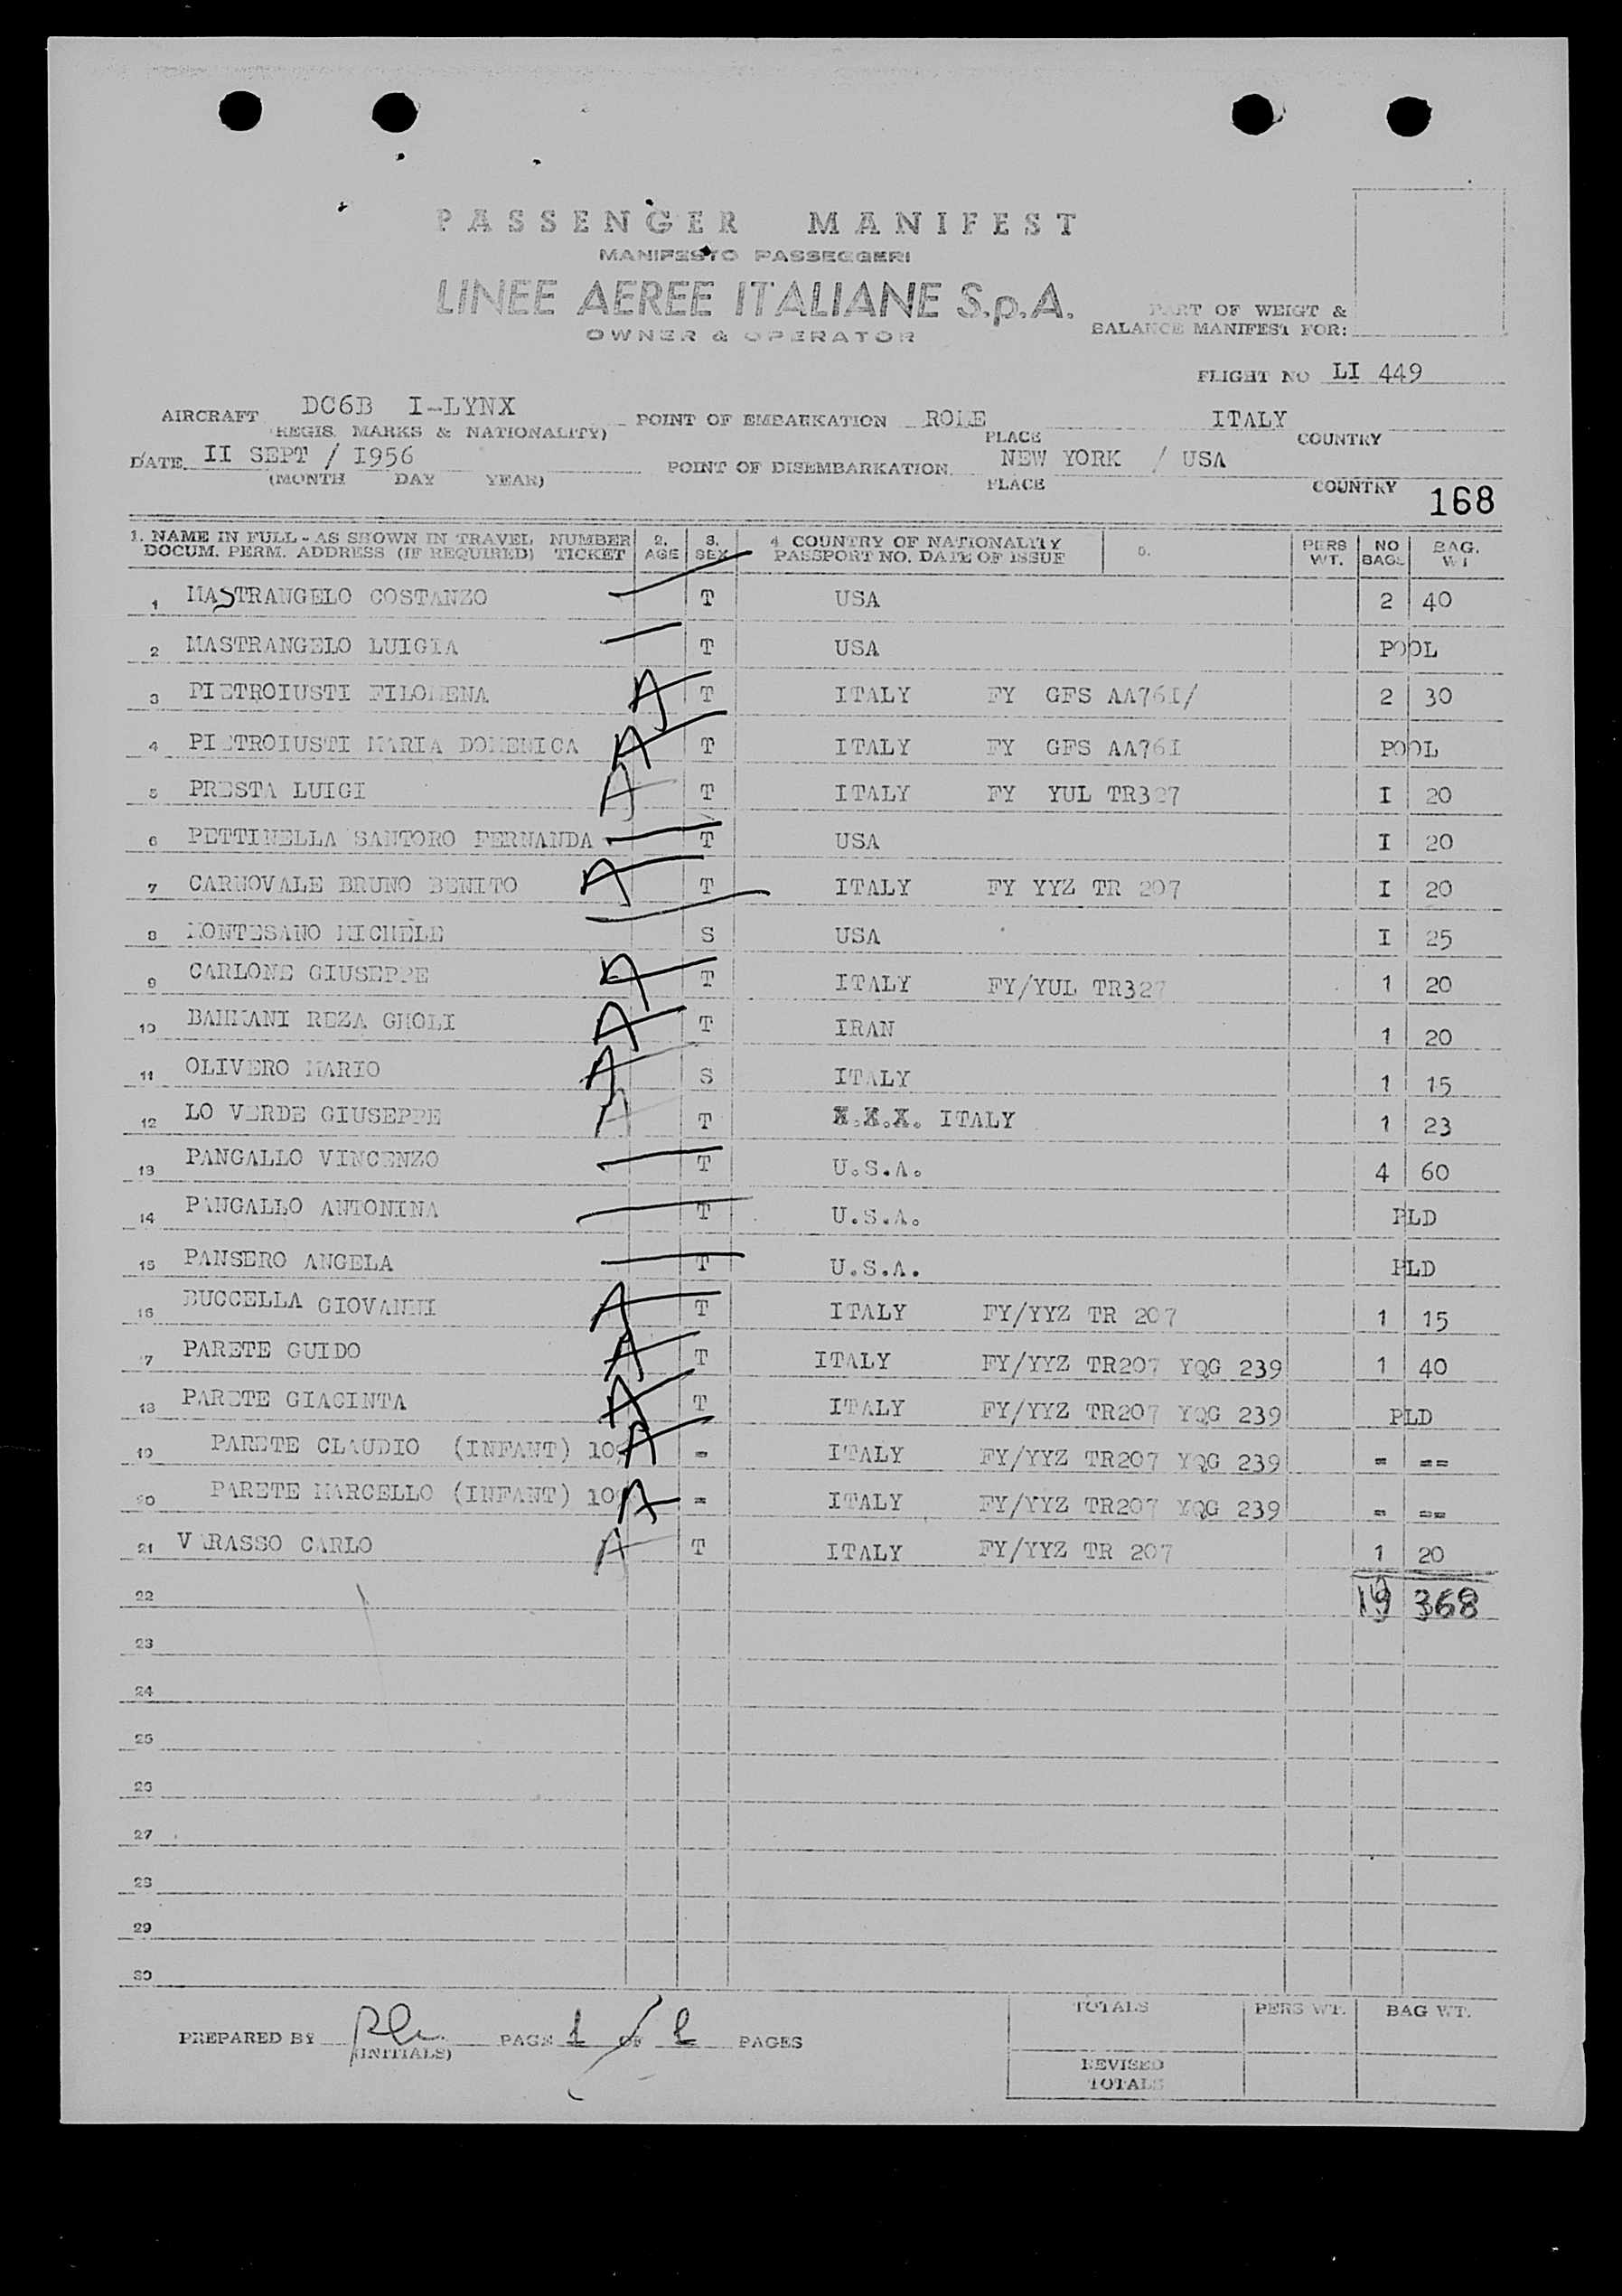 PASSENGER MANIFEST
MANIFESTO PASSEGGERI
LINEE AEREE ITALIANE S.p.A.
OWNER & OPERATOR
PART OF WEIGT &
BALANCE MANIFEST FOR:
FLIGHT NO LI 449
AIRCRAFT DC6B I-LYNX POINT OF EMBARKATION ROME ITALY
(REGIS. MARKS & NATIONALITY) PLACE COUNTRY
DATE II SEPT / I956 POINT OF DISEMBARKATION NEW YORK / USA
(MONTH DAY YEAR) PLACE COUNTRY
168
1. NAME IN FULL - AS SHOWN IN TRAVEL NUMBER 2. 3. 4 COUNTRY OF NATIONALITY 5. PERS NO BAG.
DOCUM. PERM. ADDRESS (IF REQUIRED) TICKET AGE SEX PASSPORT NO. DATE OF ISSUE WT. BAGS WT
1 MASTRANGELO COSTANZO T USA 2 40
2 MASTRANGELO LUIGIA T USA POOL
3 PIETROIUSTI FILOMENA A T ITALY FY GFS AA76I/ 2 30
4 PIETROIUSTI MARIA DOMENICA A T ITALY FY GFS AA76I POOL
5 PRESTA LUIGI A T ITALY FY YUL TR327 I 20
6 PETTINELLA SANTORO FERNANDA T USA I 20
7 CARNOVALE BRUNO BENITO A T ITALY FY YYZ TR 207 I 20
8 MONTESANO MICHELE S USA I 25
9 CARLONE GIUSEPPE A T ITALY FY/YUL TR327 1 20
10 BAHMANI REZA GHOLI A T IRAN 1 20
11 OLIVERO MARIO A S ITALY 1 15
12 LO VERDE GIUSEPPE A T X.X.X. ITALY 1 23
13 PANGALLO VINCENZO T U.S.A. 4 60
14 PANGALLO ANTONINA T U.S.A. PLD
15 PANSERO ANGELA T U.S.A. PLD
16 BUCCELLA GIOVANNI A T ITALY FY/YYZ TR 207 1 15
17 PARETE GUIDO A T ITALY FY/YYZ TR207 YQG 239 1 40
18 PARETE GIACINTA A T ITALY FY/YYZ TR207 YQG 239 PLD
19 PARETE CLAUDIO (INFANT) 10 A = ITALY FY/YYZ TR207 YQG 239 = ==
20 PARETE MARCELLO (INFANT) 10 A = ITALY FY/YYZ TR207 YQG 239 = ==
21 VARASSO CARLO A T ITALY FY/YYZ TR 207 1 20
22 19 368
23
24
25
26
27
28
29
30
TOTALS PERS WT. BAG WT.
PREPARED BY PAGE 1 OF 1 PAGES
(INITIALS)
REVISED
TOTALS